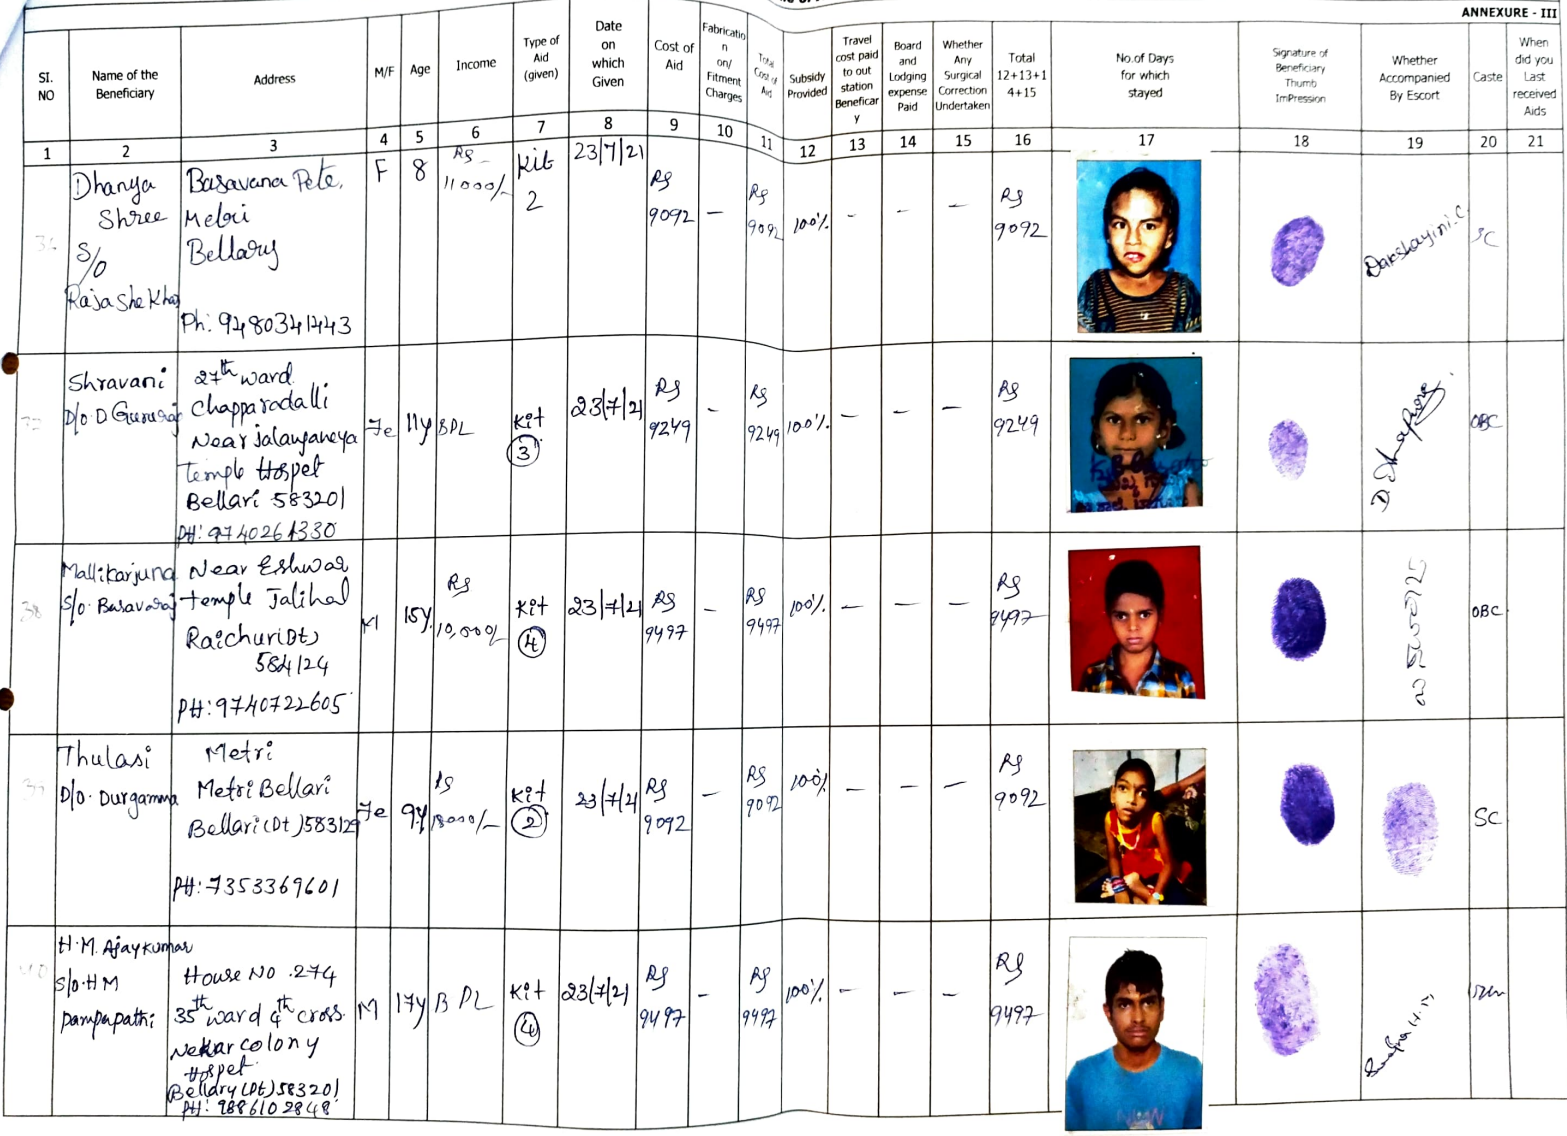 ANNEXURE - III
SI. NO
Name of the Beneficiary
Address
M/F
Age
Income
Type of Aid (given)
Date on which Given
Cost of Aid
Fabricatio n on/ Fitment Charges
Total Cost of Aid
Subsidy Provided
Travel cost paid to out station Beneficar y
Board and Lodging expense Paid
Whether Any Surgical Correction Undertaken
Total 12+13+1 4+15
No.of Days for which stayed
Signature of Beneficiary Thumb ImPression
Whether Accompanied By Escort
Caste
When did you Last received Aids
1 2 3 4 5 6 7 8 9 10 11 12 13 14 15 16 17 18 19 20 21
Dhanya Shree S/o RajasheKhar
Basavana Pete,
Metri
Bellary
Ph: 9480341443
F 8 Rs 11000/- Kit 2 23/7/21 Rs 9092 - Rs 9092 100% - - - Rs 9092
Dakshayini.C.
SC
Shravani
D/o D Gururaj
27th ward
Chapparadalli
Near jalanjaneya
temple Hospet
Bellari 583201
PH: 9740261330
Fe 11y BPL Kit 3 23/7/21 Rs 9249 - Rs 9249 100% - - - Rs 9249
OBC
38
Mallikarjuna
S/o. Basavaraj
Near Eshwar
temple Jalihal
Raichur(Dt)
584124
PH: 9740722605
M 15y. Rs 10,000/- Kit 4 23/7/21 Rs 9497 - Rs 9497 100% - - - Rs 9497
OBC
39
Thulasi
D/o. Durgamma
Metri
Metri Bellari
Bellari (Dt) 583129
PH: 7353369601
Fe 9y Rs 18000/- Kit 2 23/7/21 Rs 9092 - Rs 9092 100% - - - Rs 9092
SC
40
H.M. Ajaykumar
S/o. H M
pampapathi
House No .274
35th ward 4th cross
Nekar colony
Hospet
Bellary (Dt) 583201
PH: 9886102848
M 17y BPL Kit 4 23/7/21 Rs 9497 - Rs 9497 100% - - - Rs 9497